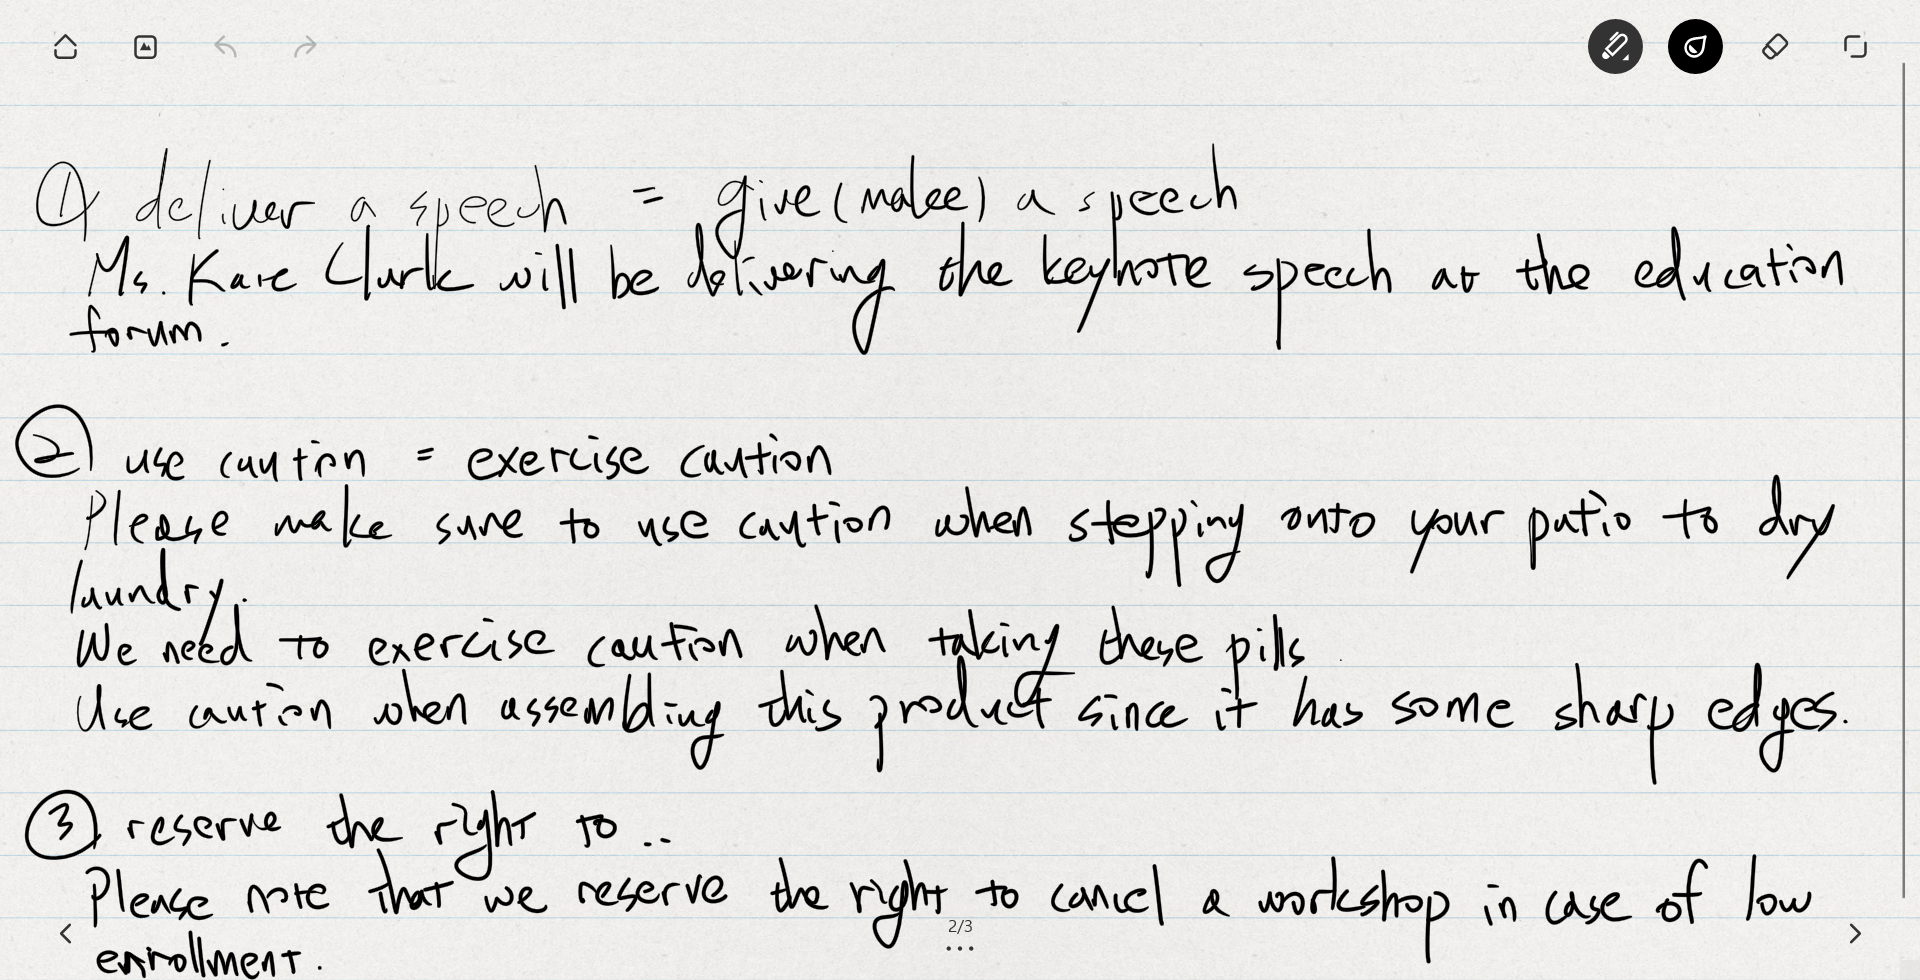 ① deliver a speech = give (make) a speech
Ms. Kate Clark will be delivering the keynote speech at the education
forum.
② use caution = exercise caution
Please make sure to use caution when stepping onto your patio to dry
laundry.
We need to exercise caution when taking these pills.
Use caution when assembling this product since it has some sharp edges.
③ reserve the right to ..
Please note that we reserve the right to cancel a workshop in case of low
enrollment.
2/3